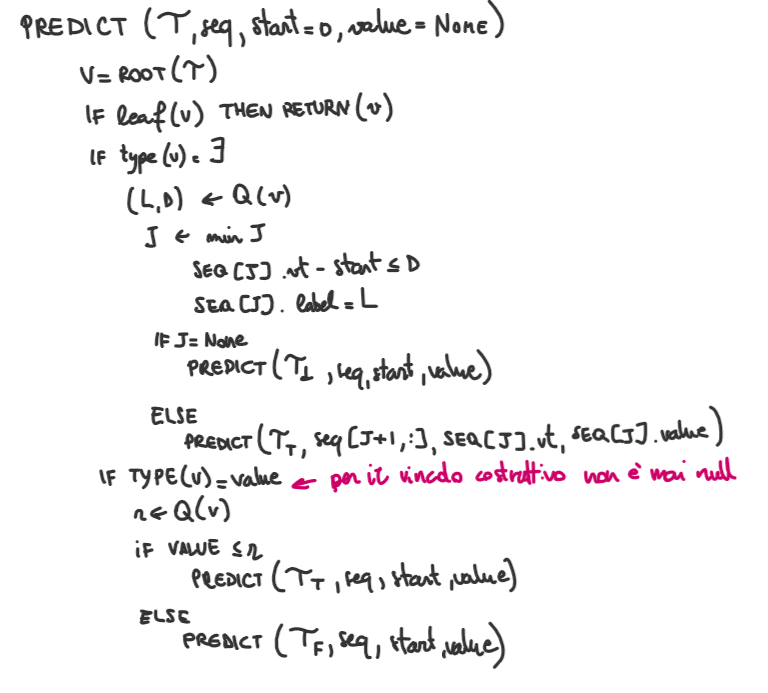 PREDICT (T, seq, start=0, value = None)
V = ROOT(T)
IF leaf(v) THEN RETURN(v)
IF type(v) = ∃
(L,D) ← Q(v)
J ← min J
SEQ[J].vt - start ≤ D
SEQ[J]. label = L
IF J = None
PREDICT(T⊥, seq, start, value)
ELSE
PREDICT(T_T, seq[J+1,:], SEQ[J].vt, SEQ[J].value)
IF TYPE(v) = value ← per il vincolo costruttivo non è mai null
r ← Q(v)
IF VALUE ≤ r
PREDICT(T_T, seq, start, value)
ELSE
PREDICT(T_F, seq, start, value)